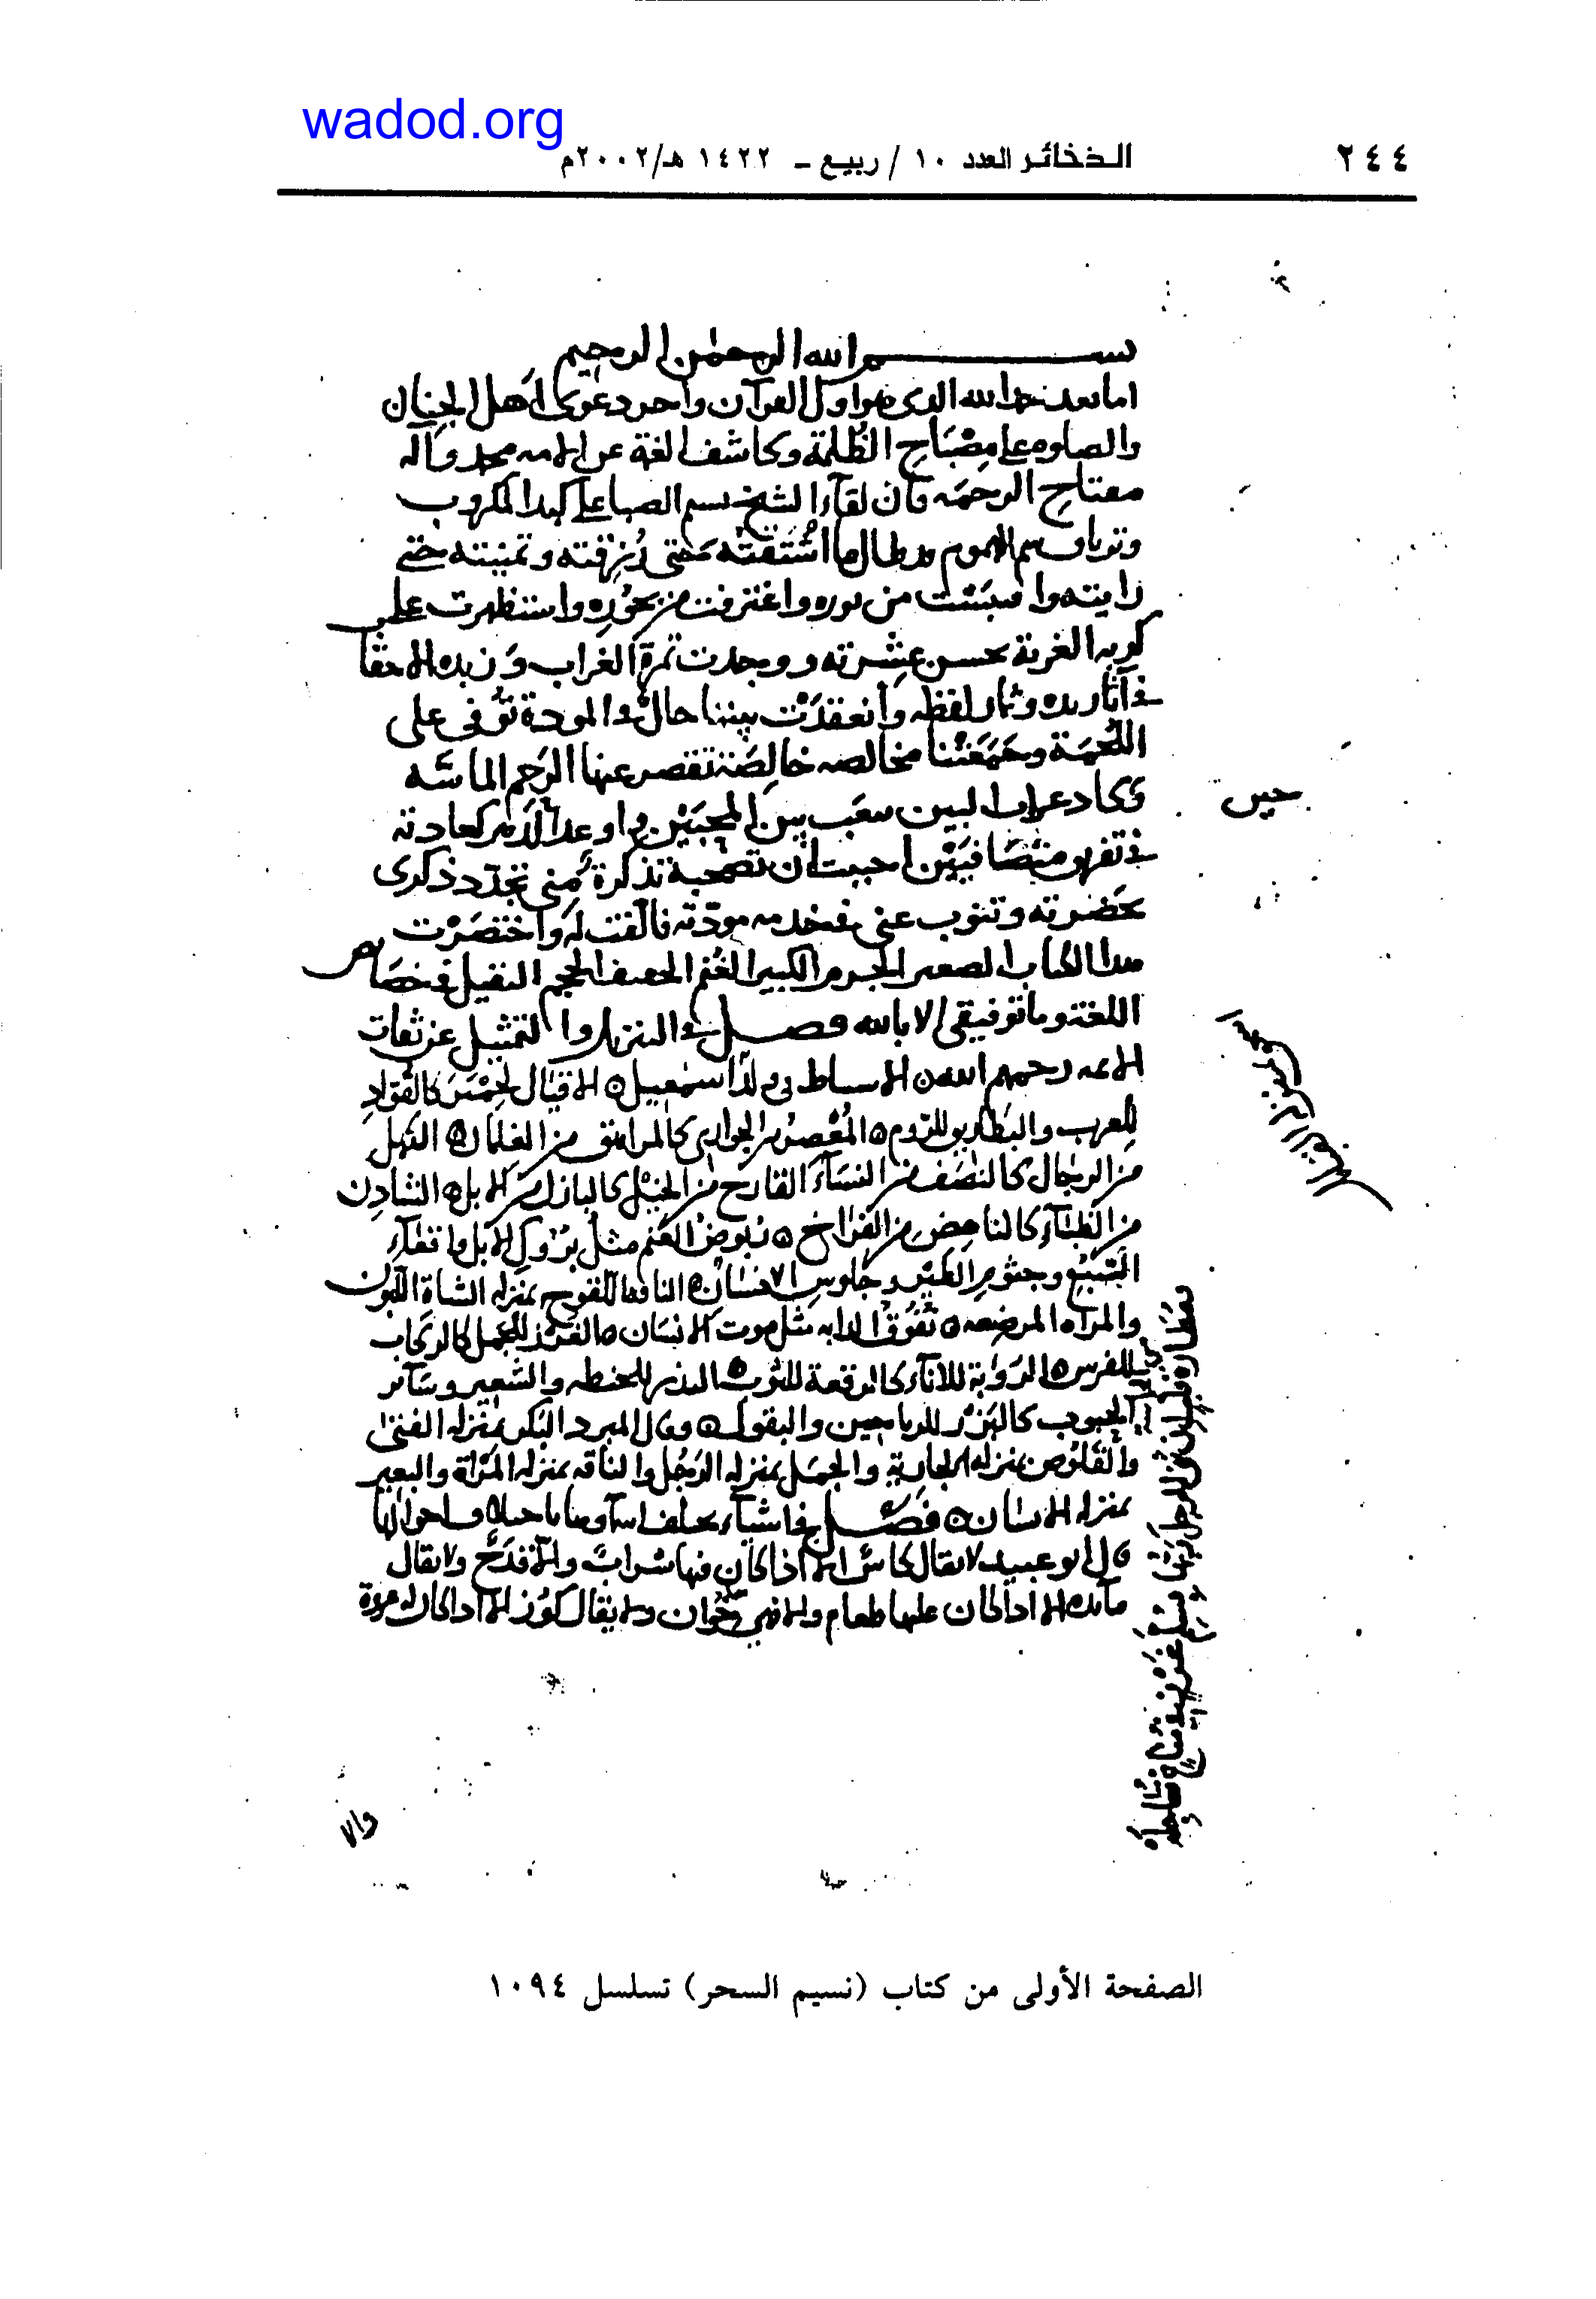 wadod.org
٢٤٤
الذخائر العدد ١٠ / ربيع - ١٤٢٢ هـ/٢٠٠٢م
بسم الله الرحمن الرحيم
اما بعد حمد الله الدى هو اول القرآن واحر دعوى اهل الجنان
والصلوه على مصباح الظلمة وكاشف الغمة عن الامه محمد وآله
مفتاح الرحمه فان لقآء الشيخ نسيم الصبا على كبد المكروب
وترياق سم الهموم وطال ما اشتقته حتى رزقته وتمنيته حتى
رايته واقتبست من نوره واغترفت من بحوره واستظهرت على
كربه الغربة بحسن عشرته ووجدت تمرة الغراب وزبده الاحقاب
في آثار يده وثمار لفظه وانعقدت بيننا حال في المودة توفى على
اللحمة وجمعتنا مخالصه خالصة تقصر عنها الرحم الماسه
وكاد غراب البين ينعب بين المحبين واوعد الدهر كعادته
حين
في تفريق متصافيين احببت ان تصحبه تذكرة مني تجدد ذكرى
بحضرته وتنوب عنى في خدمه مودته فالفت له واختصرت
هدا الكتاب الصغير الجرم الكبير الغنم الخفيف الحجم الثقيل في خصايص
اللغة وما توفيقى الا بالله فصل في التنزيل والتمثيل عن ثقات
الائمه رحمهم الله الاسباط في ولد اسمعيل الاقيال لحمير كالقواد
للعرب والبطاريق للروم المعصر من الجوارى كالمراهق من الغلمان الكهل
من الرجال كالنصف من النسآء القارح من الخيل كالبازل من الابل الشادن
من الظبآء كالناهض من الفراخ ربوض الغنم مثل بروك الابل واقعآء
السبع وجثوم الطير وجلوس الانسان الناقة اللقوح بمنزله الشاة اللبون
والمرآه المرضعه نفوق الدابه مثل موت الانسان الغرز للجمل كالركاب
للفرس الروبة للانآء كالرقعة للثوب البذر للحنطه والشعير وسآئر
الحبوب كالبزر للرياحين والبقول وقال المبرد البكر بمنزله الفتى
والقلوص بمنزله الجارية والجمل بمنزله الرجل والناقه بمنزله المرأة والبعير
بمنزله الانسان فصل في اشيآء يختلف اسمآوها باختلاف احوالها
قال ابو عبيد لا يقال كاس الا اذا كان فيها شراب والا قدح ولا يقال
مآئده الا اذا كان عليها طعام والا فهي خوان ولا يقال كوز الا اذا كان له عروة
والا
الصفحة الأولى من كتاب (نسيم السحر) تسلسل ١٠٩٤